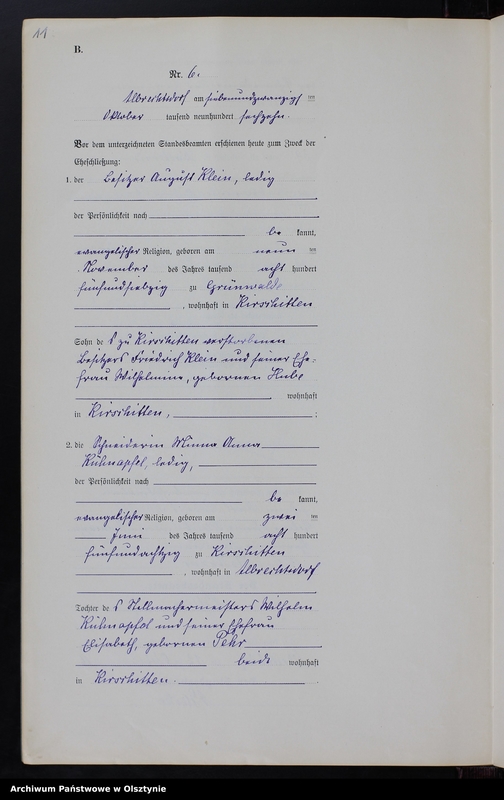 11
B.
Nr. 6.
Albrechtsdorf am siebenundzwanzigs ten
Oktober tausend neunhundert sechzehn.
Vor dem unterzeichneten Standesbeamten erschienen heute zum Zweck der
Eheschließung:
1. der Besitzer August Klein, ledig
der Persönlichkeit nach
be kannt,
evangelischer Religion, geboren am neun ten
November des Jahres tausend acht hundert
fünfundsiebzig zu Grünwalde
, wohnhaft in Kirschitten
Sohn des zu Kirschitten verstorbenen
Besitzers Friedrich Klein und seiner Ehe-
frau Wilhelmine, geborenen Hube
wohnhaft
in Kirschitten, ;
2. die Schneiderin Minna Anna
Kühnapfel, ledig,
der Persönlichkeit nach
be kannt,
evangelischer Religion, geboren am zwei ten
Juni des Jahres tausend acht hundert
fünfundachtzig zu Kirschitten
, wohnhaft in Albrechtsdorf
Tochter des Stellmachermeisters Wilhelm
Kühnapfel und seiner Ehefrau
Elisabeth, geborenen Pehr
beide wohnhaft
in Kirschitten.
Archiwum Państwowe w Olsztynie